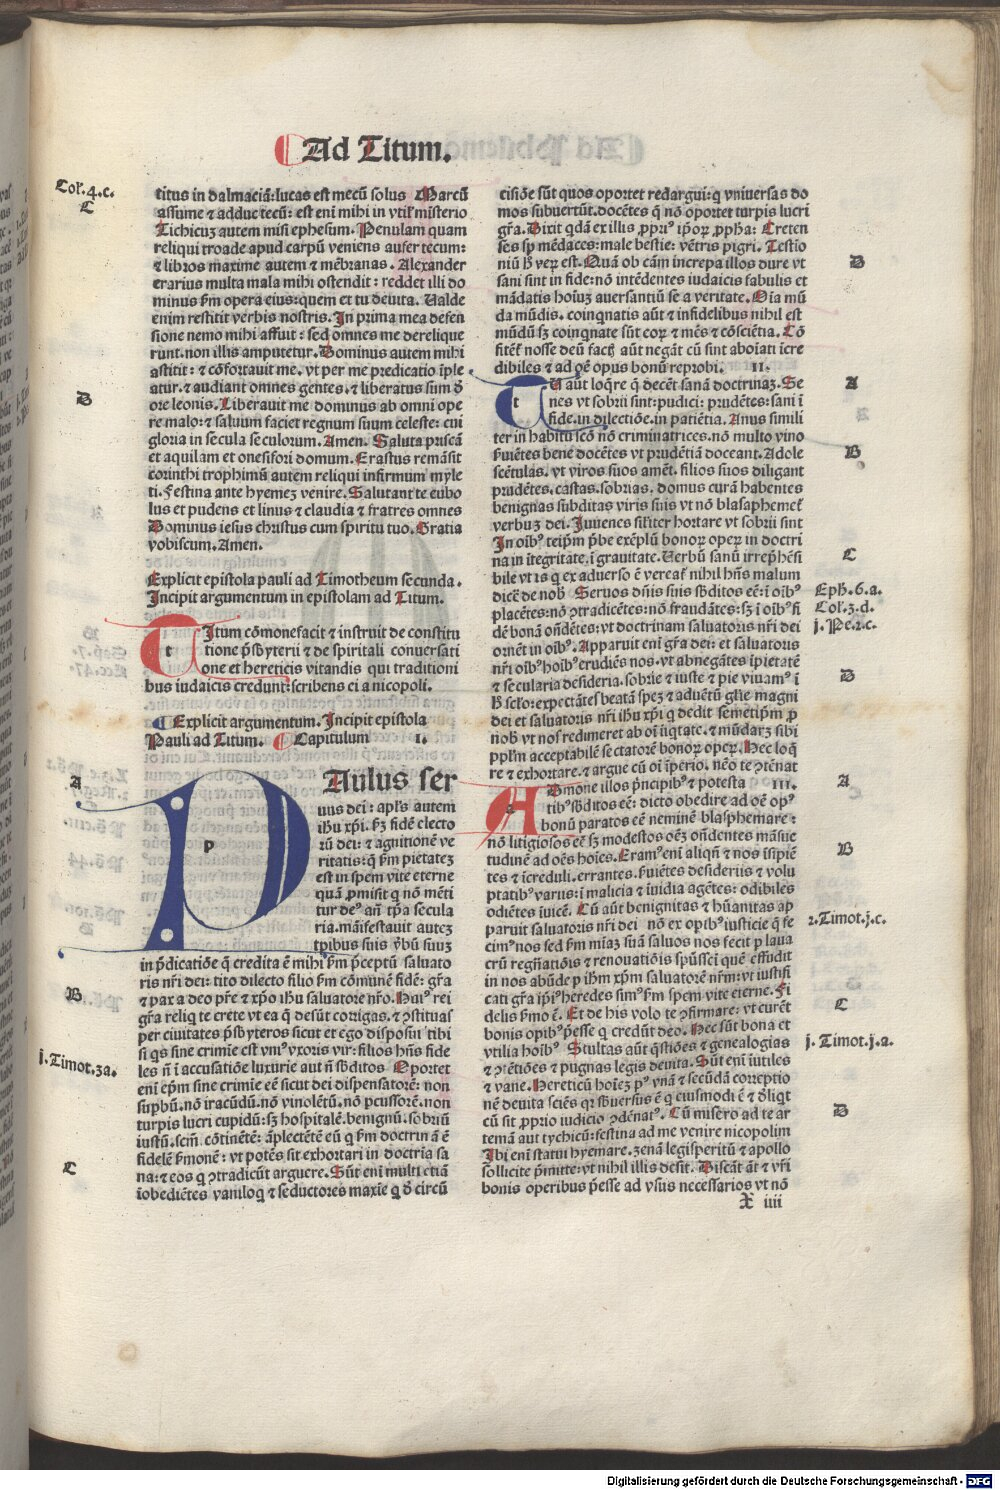 Ad Titum.
Col'.4.c.
C
titus in dalmaciā: lucas est mecū solus Marcū
assume ⁊ adduc tecū: est eni mihi in vtil' misterio
Tichicuʒ autem misi ephesum. Penulam quam
reliqui troade apud carpū veniens aufer tecum:
⁊ libros maxime autem ⁊ mēbranas. Alexander
erarius multa mala mihi ostendit: reddet illi do
minus ẜm opera eius: quem et tu deuita. Ualde
enim restitit verbis nostris. In prima mea defen
sione nemo mihi affuit: sed omnes me derelique
runt. non illis amputetur. Dominus autem mihi
astitit: ⁊ cōfortauit me. vt per me predicatio īple
atur. ⁊ audiant omnes gentes. ⁊ liberatus sum ď
D
ore leonis. Liberauit me dominus ab omni ope
re malo: ⁊ saluum faciet regnum suum celeste: cui
gloria in secula seculorum. Amen. Saluta priscā
et aquilam et onesifori domum. Erastus remāsit
corinthi trophimū autem reliqui infirmum myle
ti. Festina ante hyemeʒ venire. Salutant te eubo
lus et pudens et linus ⁊ claudia ⁊ fratres omnes
Dominus iesus christus cum spiritu tuo. Gratia
vobiscum. Amen.
Explicit epistola pauli ad Timotheum secunda.
Incipit argumentum in epistolam ad Titum.
Titum cōmonefacit ⁊ instruit de constitu
tione p̄sbyterii ⁊ de spiritali conuersati
one et hereticis vitandis qui traditioni
bus iudaicis credunt: scribens ei a nicopoli.
Explicit argumentum. Incipit epistola
Pauli ad Titum. Capitulum I.
A
Paulus ser
uus dei: apl's autem
ihu xp̄i. ẜʒ fidē electo
rū dei: ⁊ agnitionē ve
ritatis: q̄ ẜm pietateʒ
est in spem vite eterne
quā ꝓmisit q nō mēti
tur deꝰ añ tp̄a secula
ria. māifestauit auteʒ
tp̄ibus suis ꝟbū suuʒ
in p̄dicatiōe q̄ credita ē mihi ẜm p̄ceptū saluato
ris nr̄i dei: tito dilecto filio ẜm cōmunē fidē: gr̄a
B
⁊ pax a deo pr̄e ⁊ xp̄o ihu saluatore nr̄o. Huiꝰ rei
gr̄a reliq te crete vt ea q̄ desūt corrigas. ⁊ ꝯstituas
per ciuitates p̄sbyteros sicut et ego disposui tibi
si q̄s sine crimīe est vniꝰ vxoris vir: filios hn̄s fide
j.Timot.3a.
les ñ ī accusatiōe luxurie aut ñ sb̄ditos Oportet
eni ep̄m sine crimīe eē sicut dei dispensatorē: non
supbū. nō iracūdū. nō vinolētū. nō pcussorē. non
turpis lucri cupidū: sʒ hospitalē. benignū. sobriū
iustū. scm̄. cōtinētē: āplectētē eū q ẜm doctrinā ē
fidelē ẜmonē: vt potēs sit exhortari in doctria sa
C
na: ⁊ eos q ꝯtradicūt arguere. Sūt eni multi etiā
īobediētes vaniloq ⁊ seductores maxie q ď circū
cisiōe sūt quos oportet redargui: q vniuersas do
mos subuertūt. docētes q̄ nō oportet turpis lucri
gr̄a. Dixit qdā ex illis ꝓpriꝰ ip̄oꝝ ꝓpha: Creten
ses sp mēdaces: male bestie: vētris pigri. Testio
D
niū h̓ veꝝ est. Quā ob cām increpa illos dure vt
sani sint in fide: nō intēdentes iudaicis fabulis et
mādatis hoiuʒ auersantiū se a veritate. Oīa mū
da mūdis. coinqnatis aūt ⁊ infidelibus nihil est
mūdū sʒ coinqnate sūt eoꝝ ⁊ mēs ⁊ cōsciētia. Cō
fitēt' nosse deū factis aūt negāt cū sint aboiati īcre
dibiles ⁊ ad oē opus bonū reprobi. II.
A
Tu aūt loqre q̄ decēt sanā doctrinaʒ. Se
nes vt sobrii sint: pudici: prudētes: sani ī
fide. in dilectiōe. in patiētia. Anus simili
ter in habitu scō nō criminatrices. nō multo vino
B
ẜuiētes bene docētes vt prudētiā doceant. Adole
scētulas. vt viros suos amēt. filios suos diligant
prudētes. castas. sobrias. domus curā habentes
benignas subditas viris suis vt nō blasphemet'
verbuʒ dei. Juuenes sil'iter hortare vt sobrii sint
In oibꝰ teip̄m p̄be exēplū bonoꝝ opeꝝ in doctri
C
na in ītegritate. ī grauitate. Uerbū sanū irrep̄hēsi
bile vt is q ex aduerso ē vereat' nihil hn̄s malum
Eph'.6.a.
dicē de nob̓ Seruos dn̄is suis sb̄ditos eē: ī oibꝰ
Col'.3.d.
placētes: nō ꝯtradicētes: nō fraudātes: sʒ ī oibꝰ fi
j.Pe.2.c.
dē bonā on̄dētes: vt doctrinam saluatoris nr̄i dei
ornēt in oibꝰ. Apparuit eni gr̄a dei: et saluatoris
nr̄i oibꝰ hoibꝰ erudiēs nos. vt abnegātes īpietatē
D
⁊ secularia desideria. sobrie ⁊ iuste ⁊ pie viuamꝰ ī
h̓ sclo: expectātes beatā speʒ ⁊ aduētū gl'ie magni
dei et saluatoris nr̄i ihu xp̄i q dedit semetip̄m ꝓ
nob̓ vt nos redimeret ab oi īiqtate. ⁊ mūdarʒ sibi
pplm̄ acceptabilē sectatorē bonoꝝ opeꝝ. Hec loq̄
re ⁊ exhortare. ⁊ argue cū oi īperio. nēo te ꝯtēnat
A
Admone illos p̄ncipibꝰ ⁊ potesta III.
tibꝰ sb̄ditos eē: dicto obedire ad oē opꝰ
bonū paratos eē neminē blasphemare:
nō litigiosos eē sʒ modestos oēʒ on̄dentes māsue
B
tudinē ad oēs hoīes. Eramꝰ eni aliqñ ⁊ nos īsipiē
tes ⁊ īcreduli. errantes. ẜuiētes desideriis ⁊ volu
ptatibꝰ variis: ī malicia ⁊ īuidia agētes: odibiles
odiētes īuicē. Cū aūt benignitas ⁊ hūanitas ap
2.Timot.j.c.
paruit saluatoris nr̄i dei nō ex opibꝰ iusticie q̄ fe
cimꝰ nos sed ẜm miāʒ suā saluos nos fecit p laua
crū regn̄atiōis ⁊ renouatiōis sp̄ussci quē effudit
in nos abūde p ihm xp̄m saluatorē nr̄m: vt iustifi
cati gr̄a ip̄iꝰ heredes simꝰ ẜm spem vite eterne. Fi
C
delis ẜmo ē. Et de his volo te ꝯfirmare: vt curēt
bonis opibꝰ p̄esse q credūt deo. Hec sūt bona et
j.Timot.j.a.
vtilia hoibꝰ Stultas aūt q̄stiōes ⁊ genealogias
⁊ ꝯtētiōes ⁊ pugnas legis deuita. Sūt eni īutiles
⁊ vane. Hereticū hoieʒ pꝰ vnā ⁊ secūdā correptio
nē deuita sciēs qꝛ sb̄uersus ē q eiusmodi ē ⁊ ďliqt
D
cū sit ꝓprio iudicio ꝯdēnatꝰ. Cū misero ad te ar
temā aut tychicū: festina ad me venire nicopolim
Ibi eni statui hyemare. zenā legisperitū ⁊ apollo
sollicite p̄mitte: vt nihil illis desit. Discāt āt ⁊ vr̄i
bonis operibus p̄esse ad vsus necessarios vt nō
X iiii
Digitalisierung gefördert durch die Deutsche Forschungsgemeinschaft - DFG